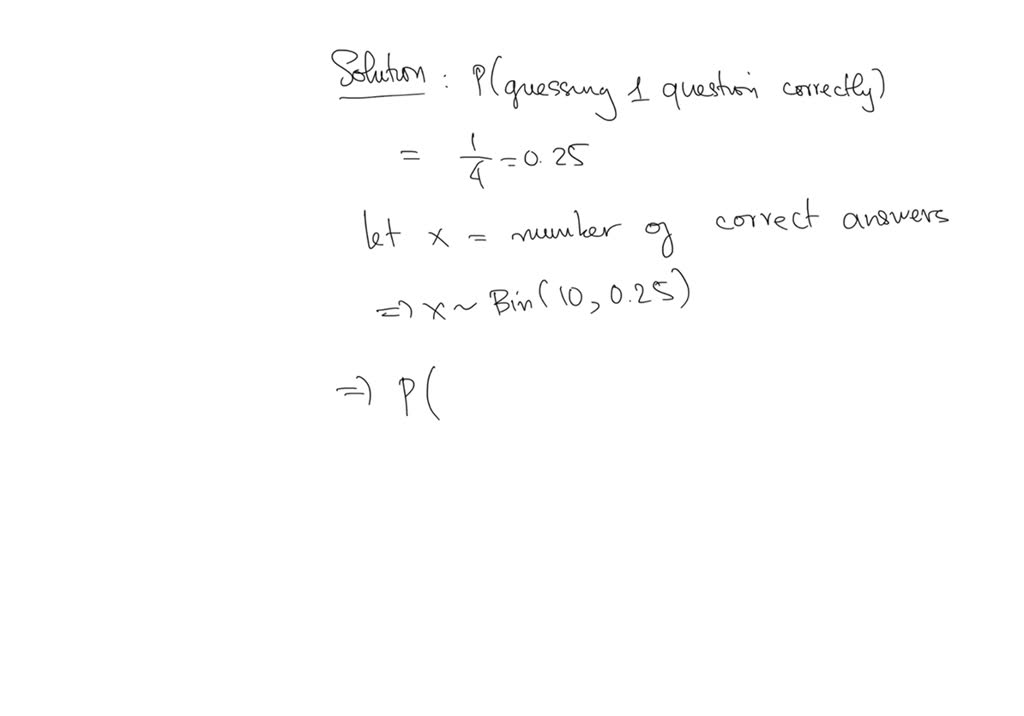 Solution : P(guessing 1 question correctly)
= 1/4 = 0.25
let x = number of correct answers
=> x ~ Bin(10, 0.25)
=> P(